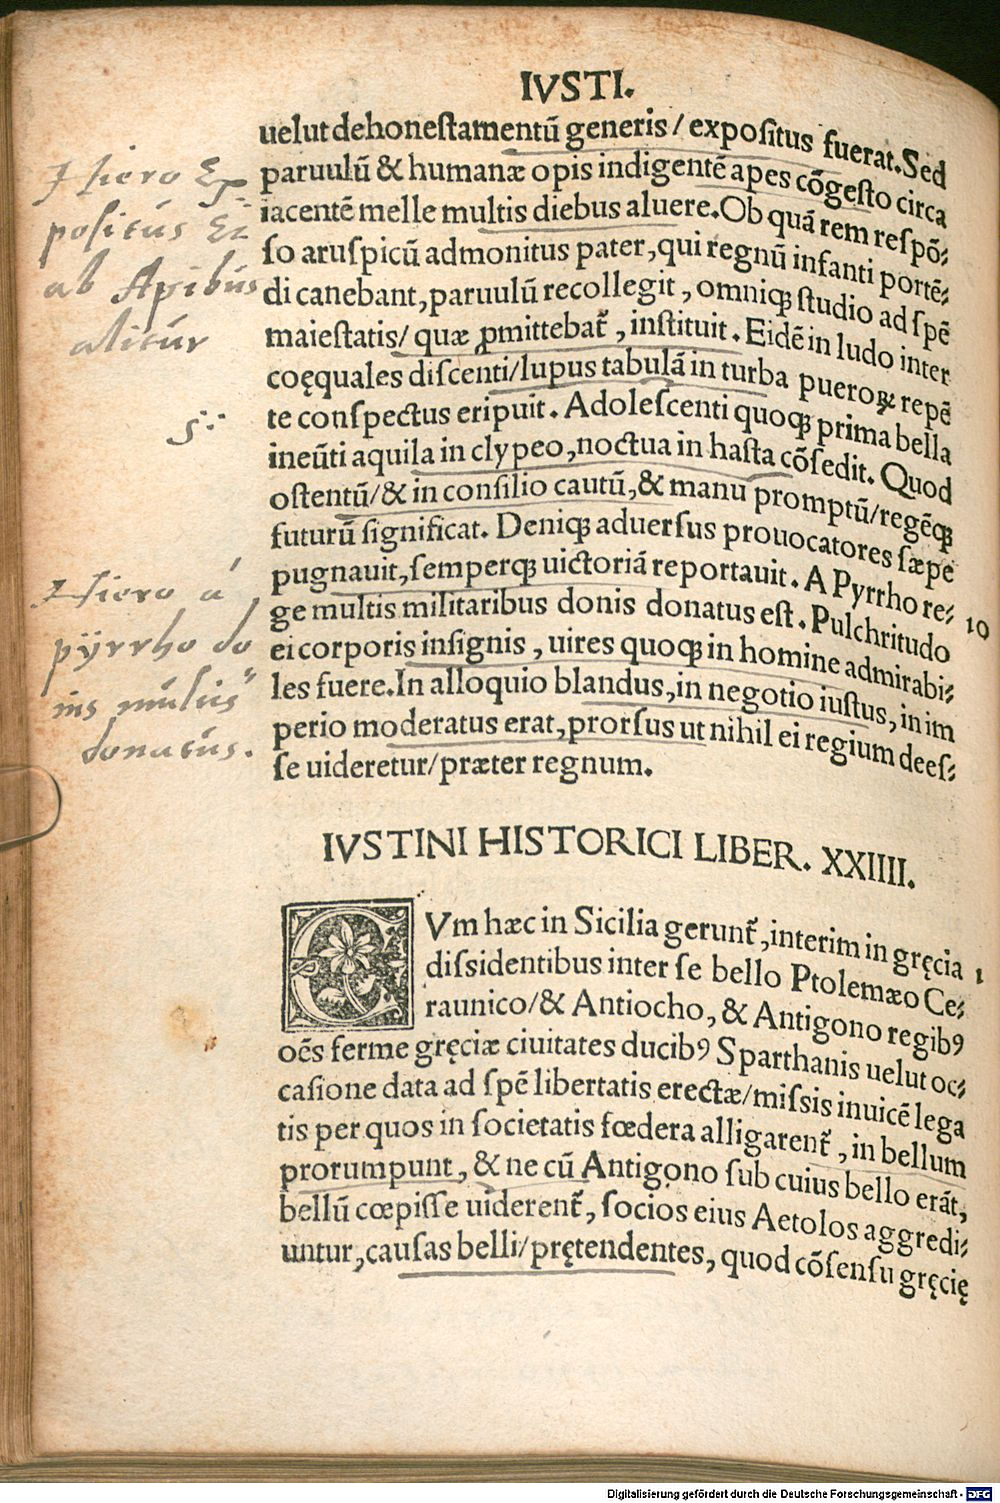 IVSTI.
uelut dehonestamentū generis / expositus fuerat. Sed
paruulū & humanæ opis indigentē apes cōgesto circa
iacentē melle multis diebus aluere. Ob quā rem respō⸗
so aruspicū admonitus pater, qui regnū infanti portē⸗
di canebant, paruulū recollegit, omniqꝫ studio ad spē
maiestatis / quæ ꝓmittebat᷑, instituit. Eidē in ludo inter
coęquales discenti / lupus tabulā in turba pueroꝝ repē
te conspectus eripuit. Adolescenti quoqꝫ prima bella
ineūti aquila in clypeo, noctua in hasta cōsedit. Quod
ostentū / & in consilio cautū, & manu promptū / regēqꝫ
futurū significat. Deniqꝫ aduersus prouocatores sæpe
pugnauit, semperqꝫ uictoriā reportauit. A Pyrrho re⸗
ge multis militaribus donis donatus est. Pulchritudo
ei corporis insignis, uires quoqꝫ in homine admirabi⸗
les fuere. In alloquio blandus, in negotio iustus, in im
perio moderatus erat, prorsus ut nihil ei regium dees⸗
se uideretur / præter regnum.
Hiero Ex
positus Et
ab Apibus
alitur
s:
Hiero á
pÿrrho do
nis multis
donatus.
10
IVSTINI HISTORICI LIBER. XXIIII.
CVm hæc in Sicilia gerunt᷑, interim in gręcia
dissidentibus inter se bello Ptolemæo Ce⸗
raunico / & Antiocho, & Antigono regibꝰ
oēs ferme gręciæ ciuitates ducibꝰ Sparthanis uelut oc⸗
casione data ad spē libertatis erectæ / missis inuicē lega
tis per quos in societatis fœdera alligarent᷑, in bellum
prorumpunt, & ne cū Antigono sub cuius bello erāt,
bellū cœpisse uiderent᷑, socios eius Aetolos aggredi⸗
untur, causas belli / prętendentes, quod cōsensu gręcię
1
Digitalisierung gefördert durch die Deutsche Forschungsgemeinschaft - DFG